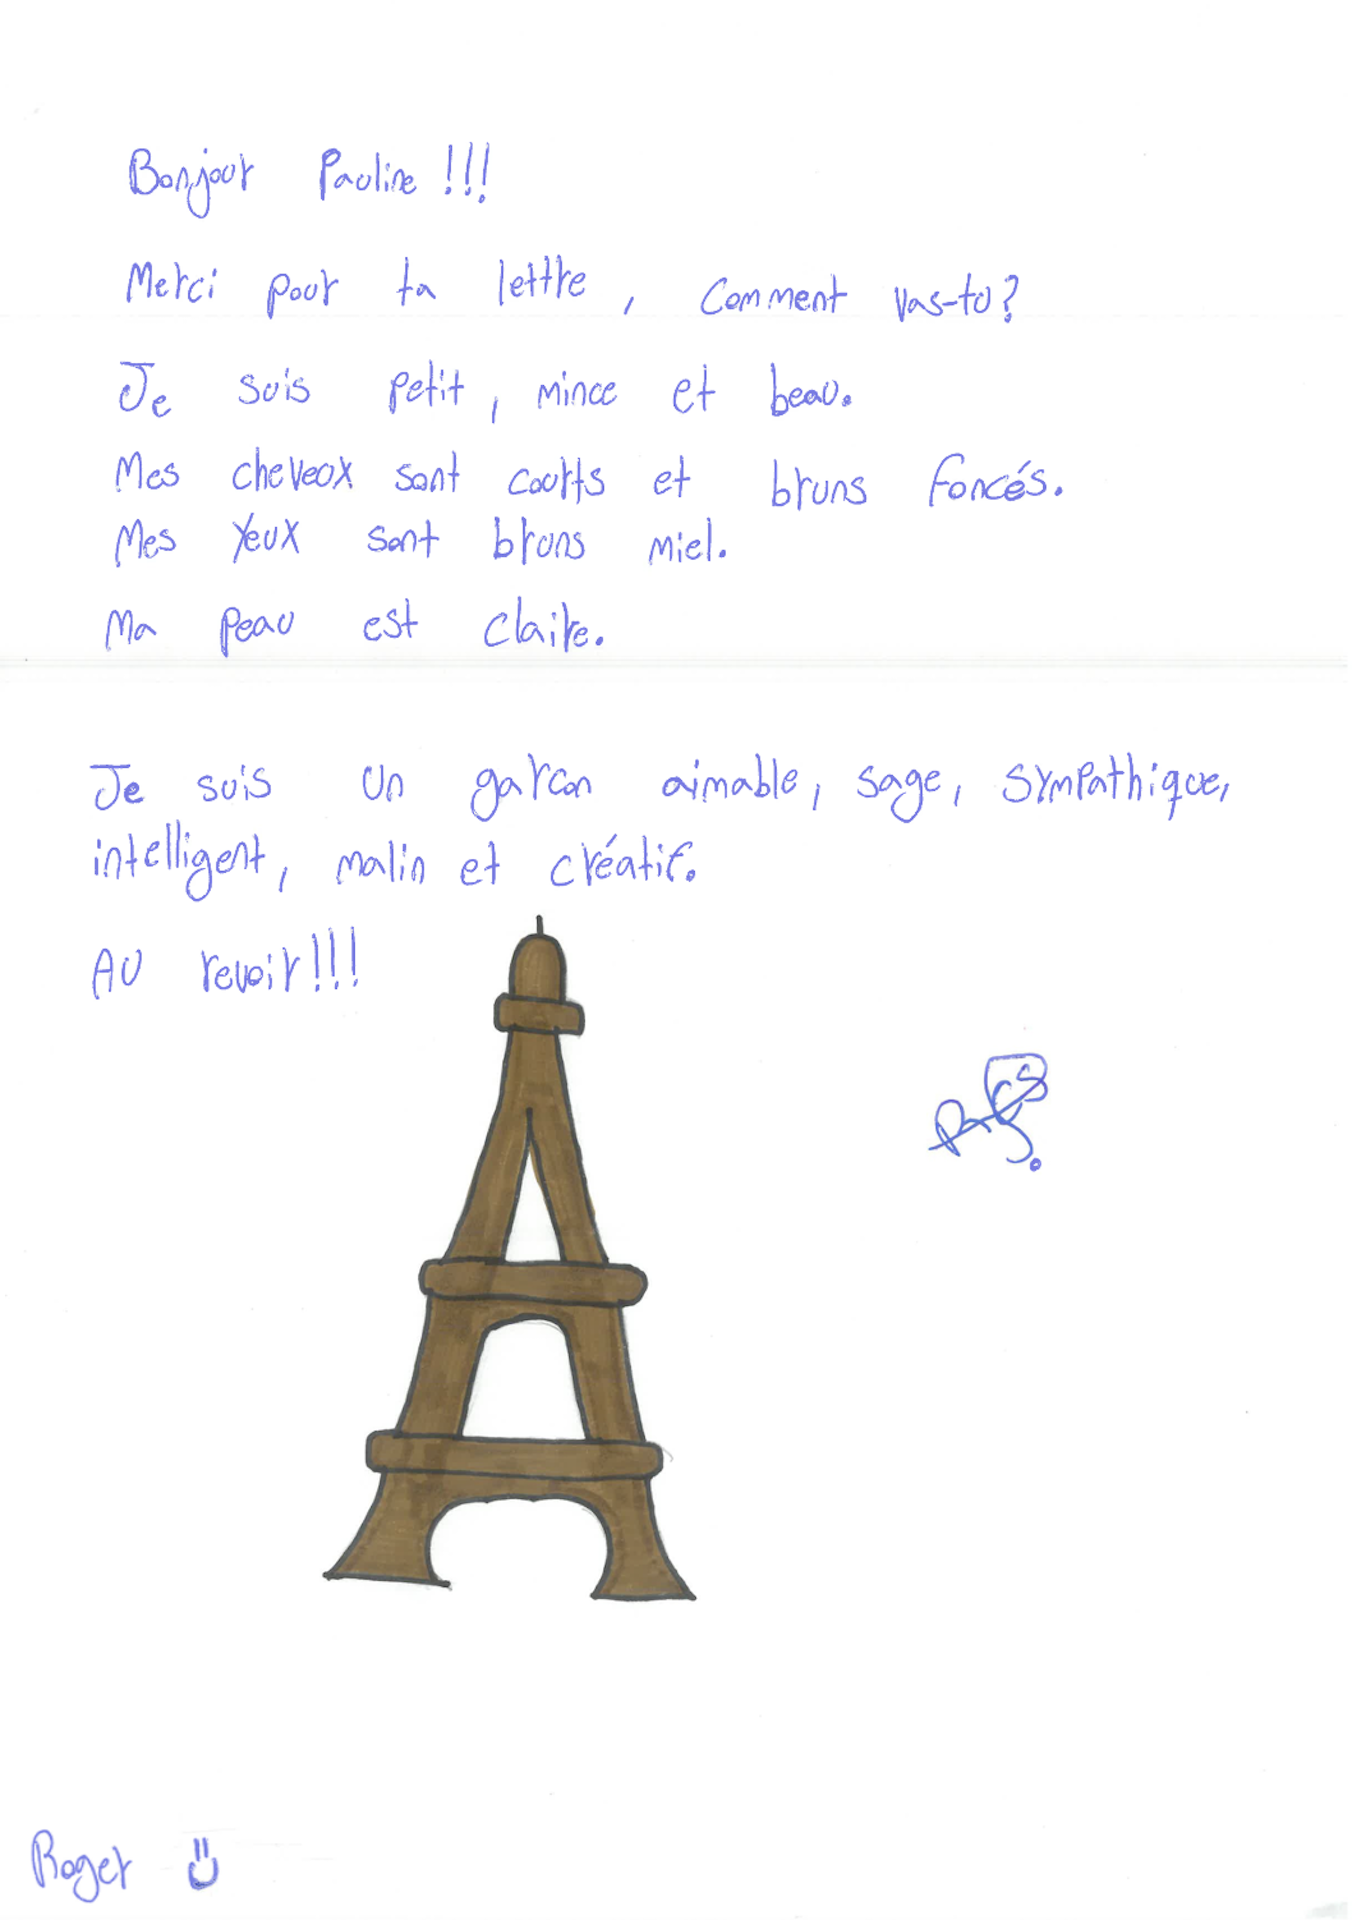 Bonjour Pauline !!!
Merci pour ta lettre, comment vas-tu?
Je suis petit, mince et beau.
Mes cheveux sont courts et bruns foncés.
Mes yeux sont bruns miel.
Ma peau est claire.
Je suis un garcon aimable, sage, sympathique,
intelligent, malin et créatif.
AU revoir!!!
Roger